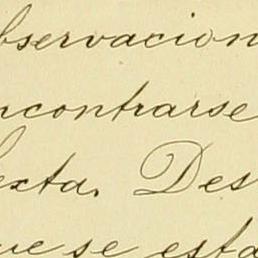 bservacion
ncontrarse
exta. Des
ue se esta